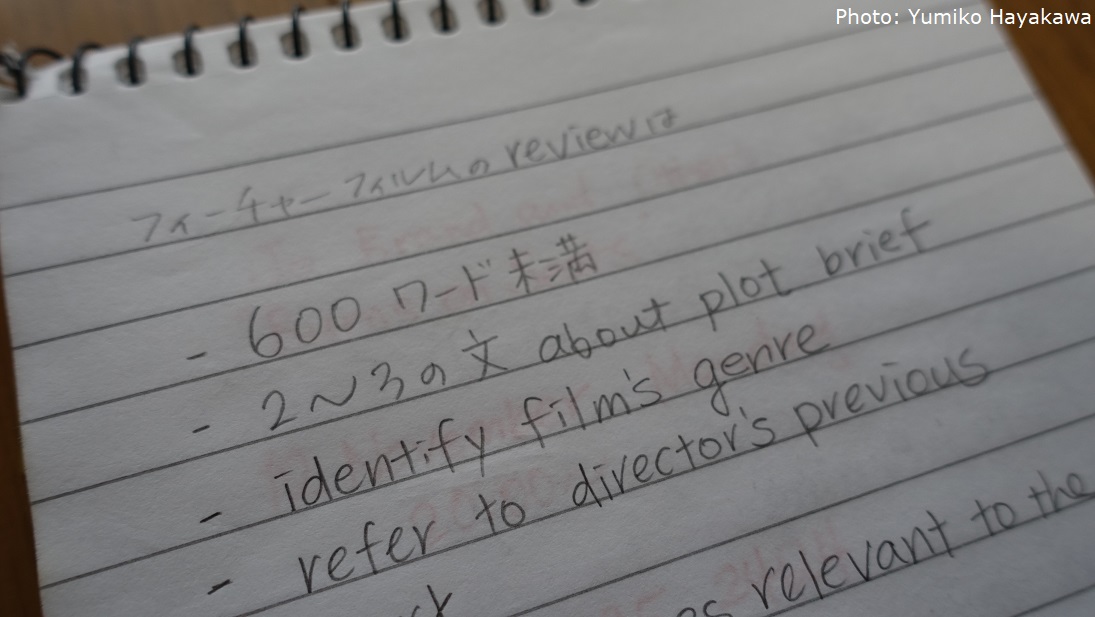 Photo: Yumiko Hayakawa
フィーチャーフィルムの reviewは
- 600 ワード未満
- 2~3の文 about plot brief
- identify film's genre
- refer to director's previous
relevant to the